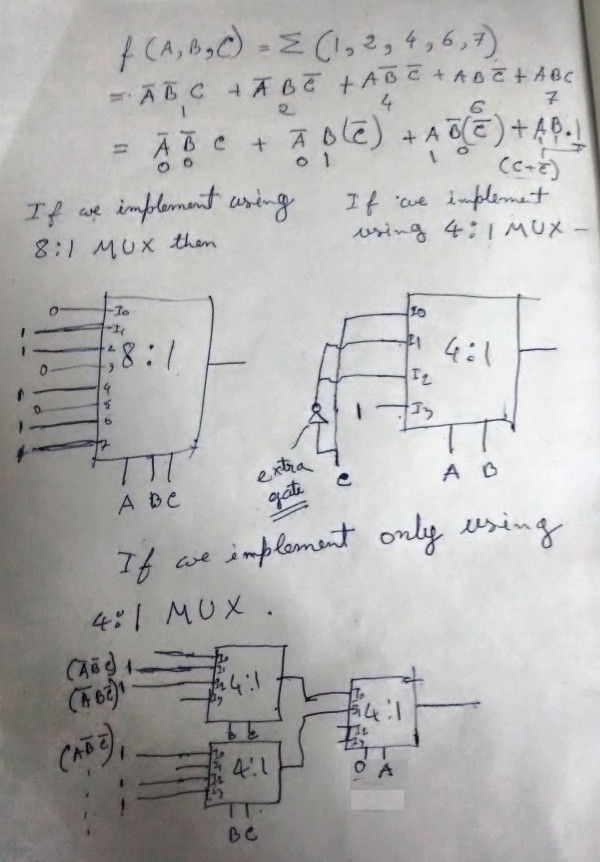 f (A, B, C) = Σ (1, 2, 4, 6, 7)
= A̅ B̅ C + A̅ B C̅ + A B̅ C̅ + A B C̅ + A B C
1 2 4 6 7
= A̅ B̅ C + A̅ B (C̅) + A B̅ (C̅) + A B . 1
0 0 0 1 1 0 1 1
(C+C̅)
If we implement using
8:1 MUX then
If we implement
using 4:1 MUX –
0 I0
1 I1
1 2
0 3
1 4
0 5
1 6
1 7
8:1
A B C
I0
I1
I2
1 I3
4:1
A B
extra
gate
C
If we implement only using
4:1 MUX .
(A̅ B̅ C) 1
(A̅ B C̅) 1
I0
I1
I2
I3
4:1
B C
(A B̅ C̅) 1
1
1
I0
I1
I2
I3
4:1
B C
I0
I1
I2
I3
4:1
0 A